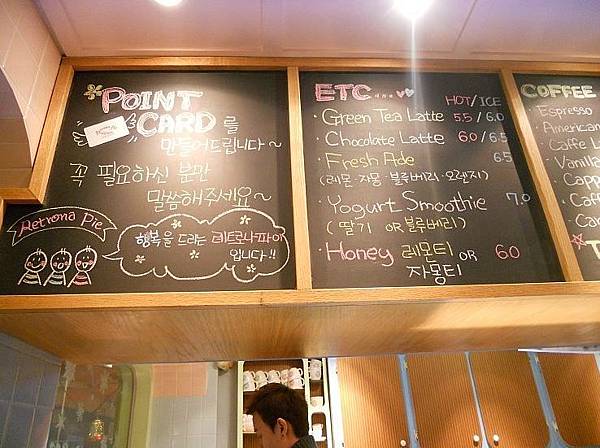 POINT
CARD 를
만들어드립니다~
꼭 필요하신 분만
말씀해주세요~
Retrona Pie
행복을 드리는 레트로나파이
입니다!!
ETC....
HOT/ICE
· Green Tea Latte 5.5/6.0
· Chocolate Latte 6.0/6.5
· Fresh Ade 6.5
(레몬·자몽·블루베리·오렌지)
· Yogurt Smoothie 7.0
(딸기 OR 블루베리)
· Honey 레몬티 OR 6.0
자몽티
COFFEE
· Espresso
· American
· Caffe L
· Vanilla
· Capp
· Caff
· Ca